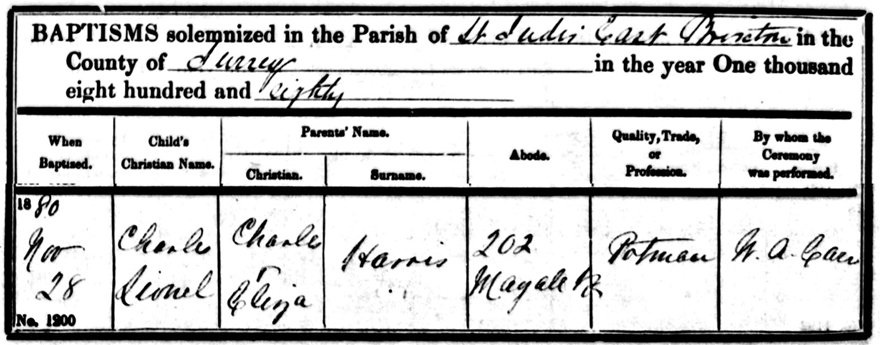 BAPTISMS solemnized in the Parish of St Judes East Brixton in the
County of Surrey in the year One thousand
eight hundred and eighty
When Baptised.
Child's Christian Name.
Parents' Name.
Christian.
Surname.
Abode.
Quality, Trade, or Profession.
By whom the Ceremony was performed.
1880
Nov
28
No. 1200
Charles
Lionel
Charles
Eliza
Harris
202
Potman
W. A.